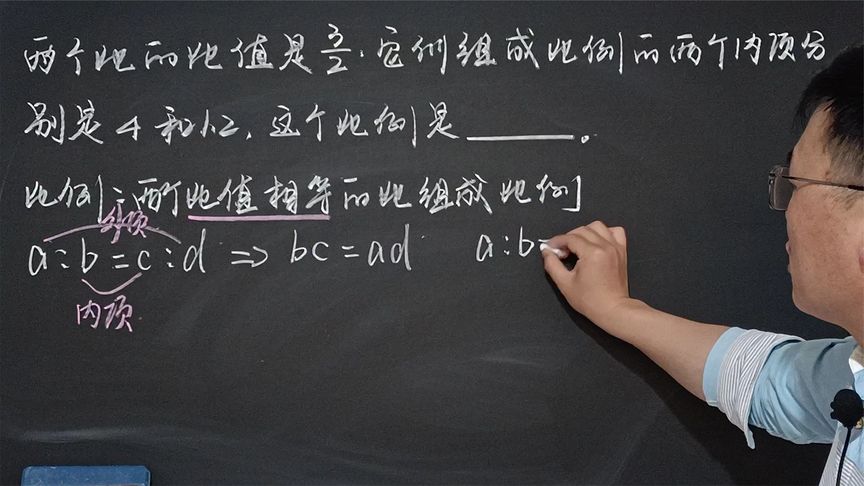 两个比的比值是3/2,它们组成比例的两个内项分
别是4和12,这个比例是______。
比例:两个比值相等的比组成比例
外项
a:b=c:d ⇒ bc=ad a:b=
内项